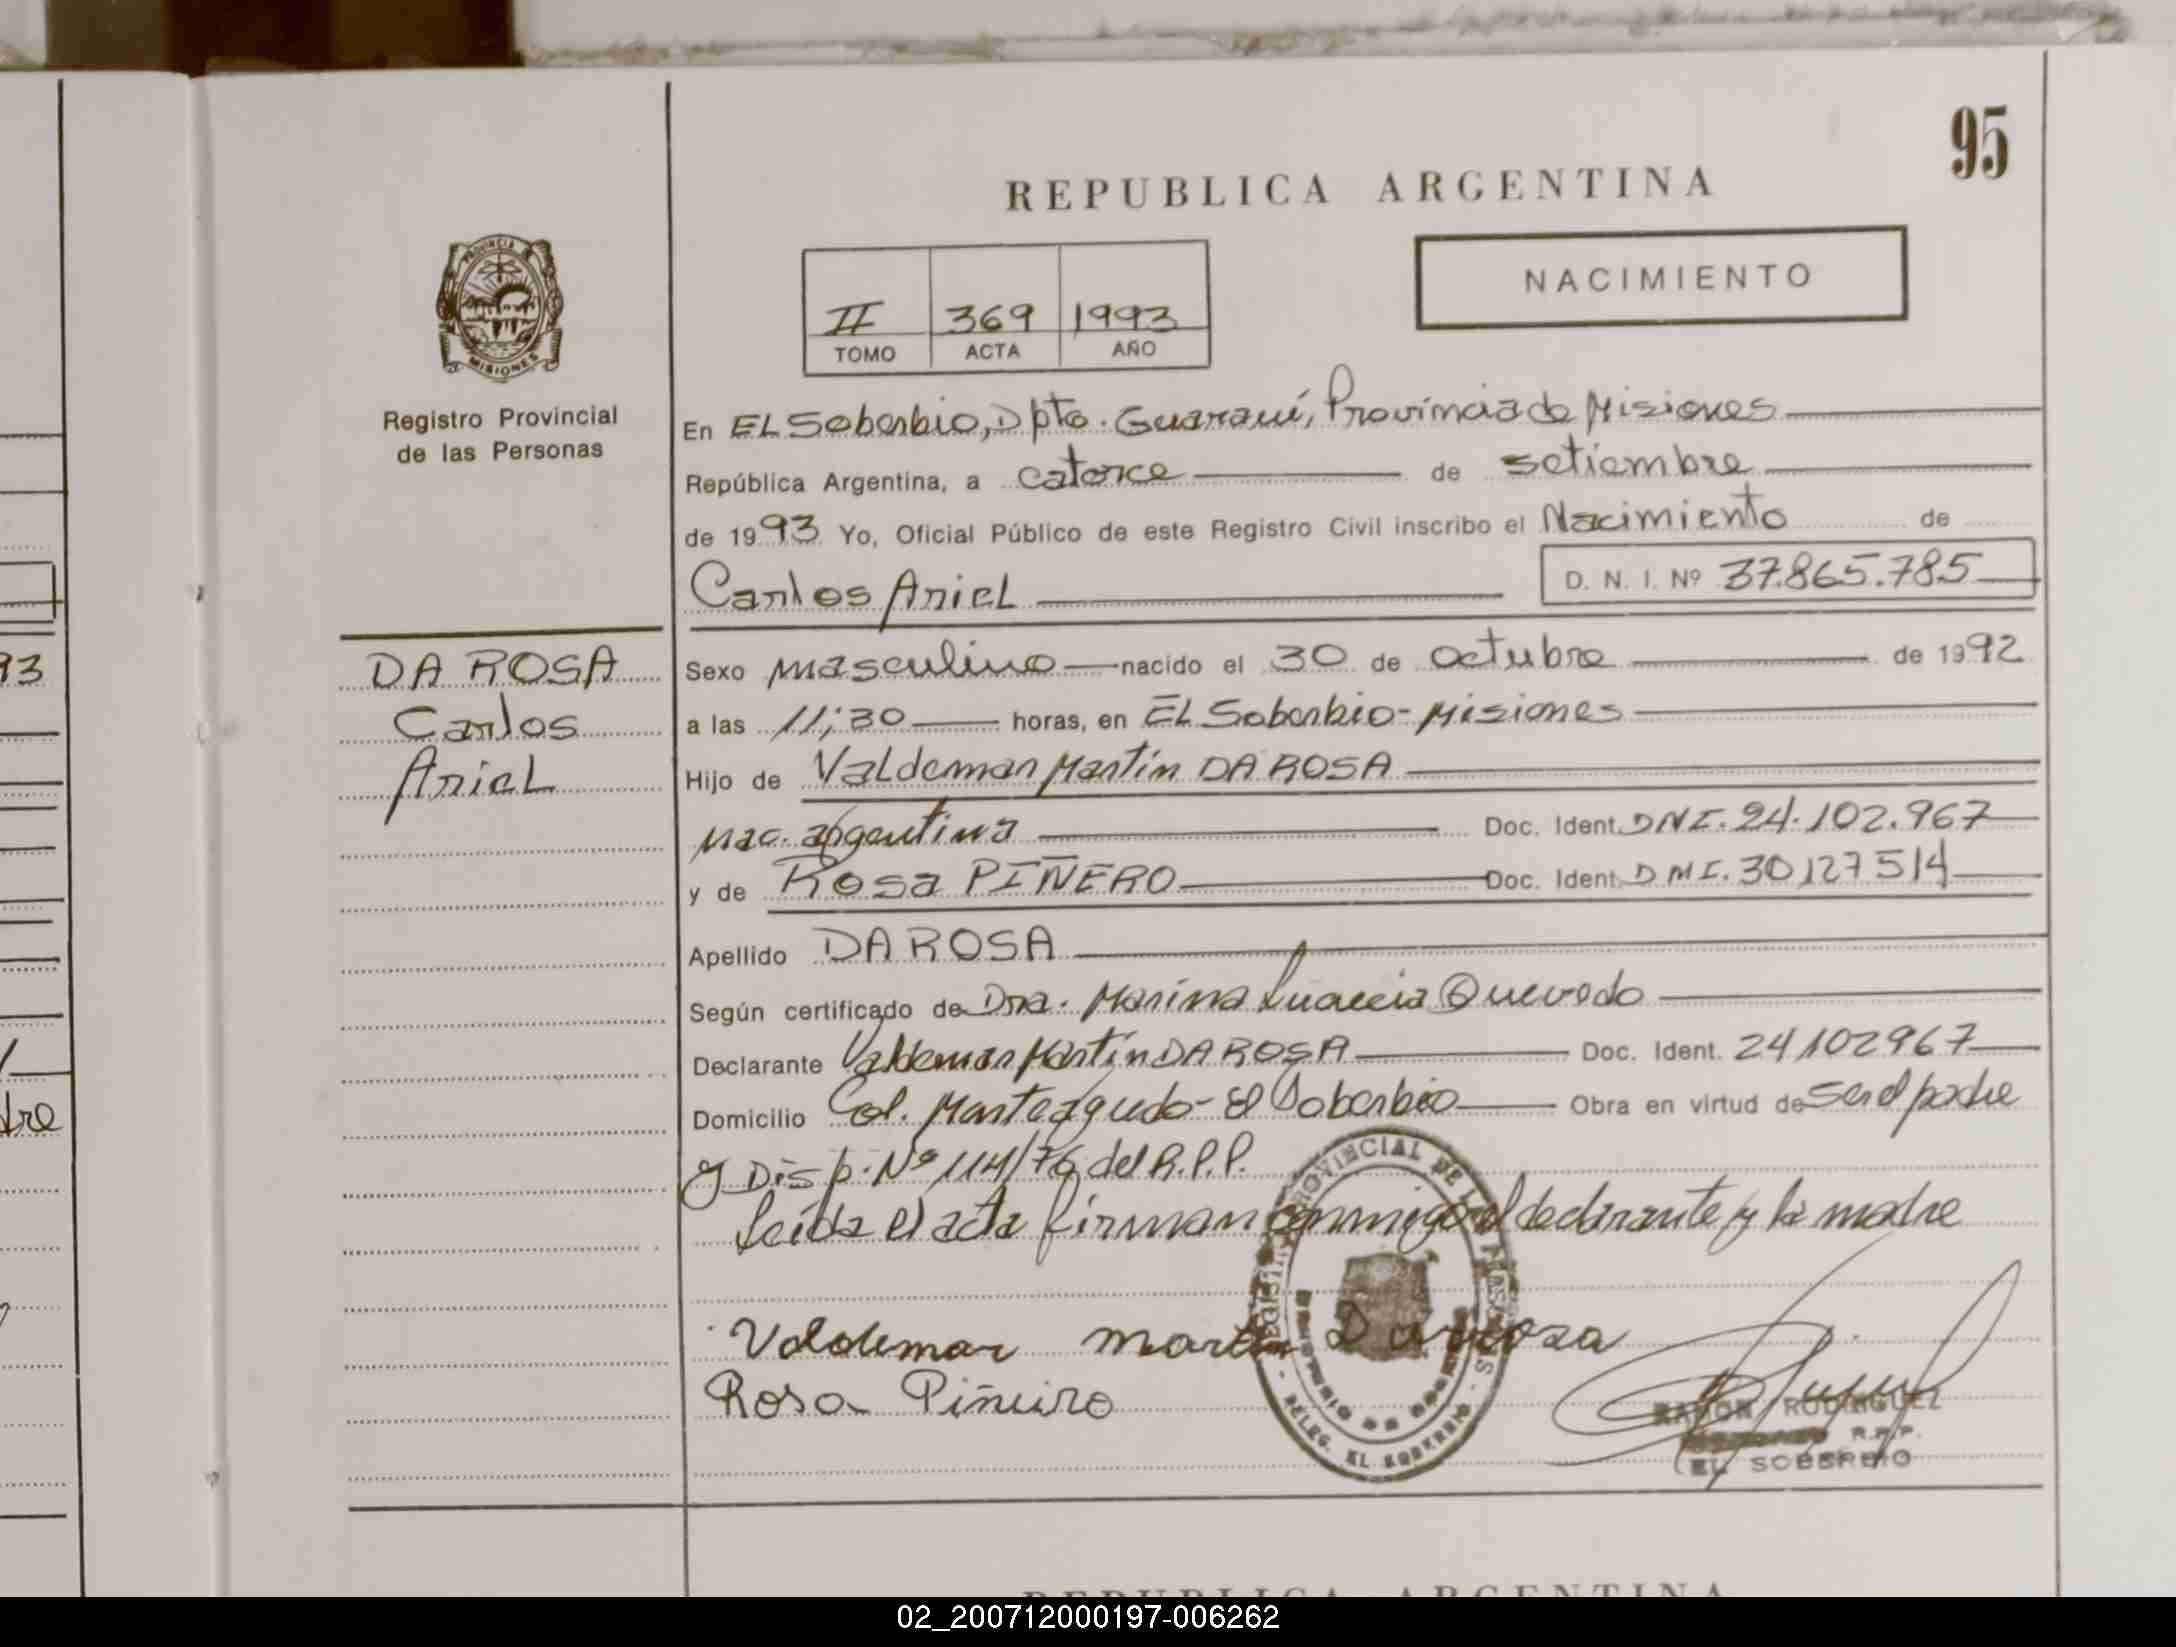 95
REPUBLICA ARGENTINA
NACIMIENTO
II 369 1993
TOMO ACTA AÑO
PROVINCIA DE MISIONES
Registro Provincial
de las Personas
En EL Soberbio, Dpto. Guaraní, Provincia de Misiones
República Argentina, a catorce de setiembre
de 1993 Yo, Oficial Público de este Registro Civil inscribo el Nacimiento de
Carlos Ariel D. N. I. Nº 37.865.785
DA ROSA
Carlos
Ariel
Sexo masculino nacido el 30 de octubre de 1992
a las 11;30 horas, en EL Soberbio - Misiones
Hijo de Valdemar Martín DA ROSA
nac. argentina Doc. Ident. DNI. 24.102.967
y de Rosa PIÑERO Doc. Ident. DNI. 30127514
Apellido DA ROSA
Según certificado de Dra. Marina Quevedo
Declarante Valdemar Martín DA ROSA Doc. Ident. 24102967
Domicilio Col. Monteagudo - El Soberbio Obra en virtud de ser el padre
y Disp. Nº 114/76 del R.P.P.
Leída el acta firman conmigo el declarante y la madre
Valdemar Martin Da Rosa
Rosa Piñeiro
PROVINCIAL DE LAS PERSONAS
DELEG. EL SOBERBIO
RAMON RODRIGUEZ
R.P.P.
EL SOBERBIO
93
dre
REPUBLICA ARGENTINA
02_200712000197-006262